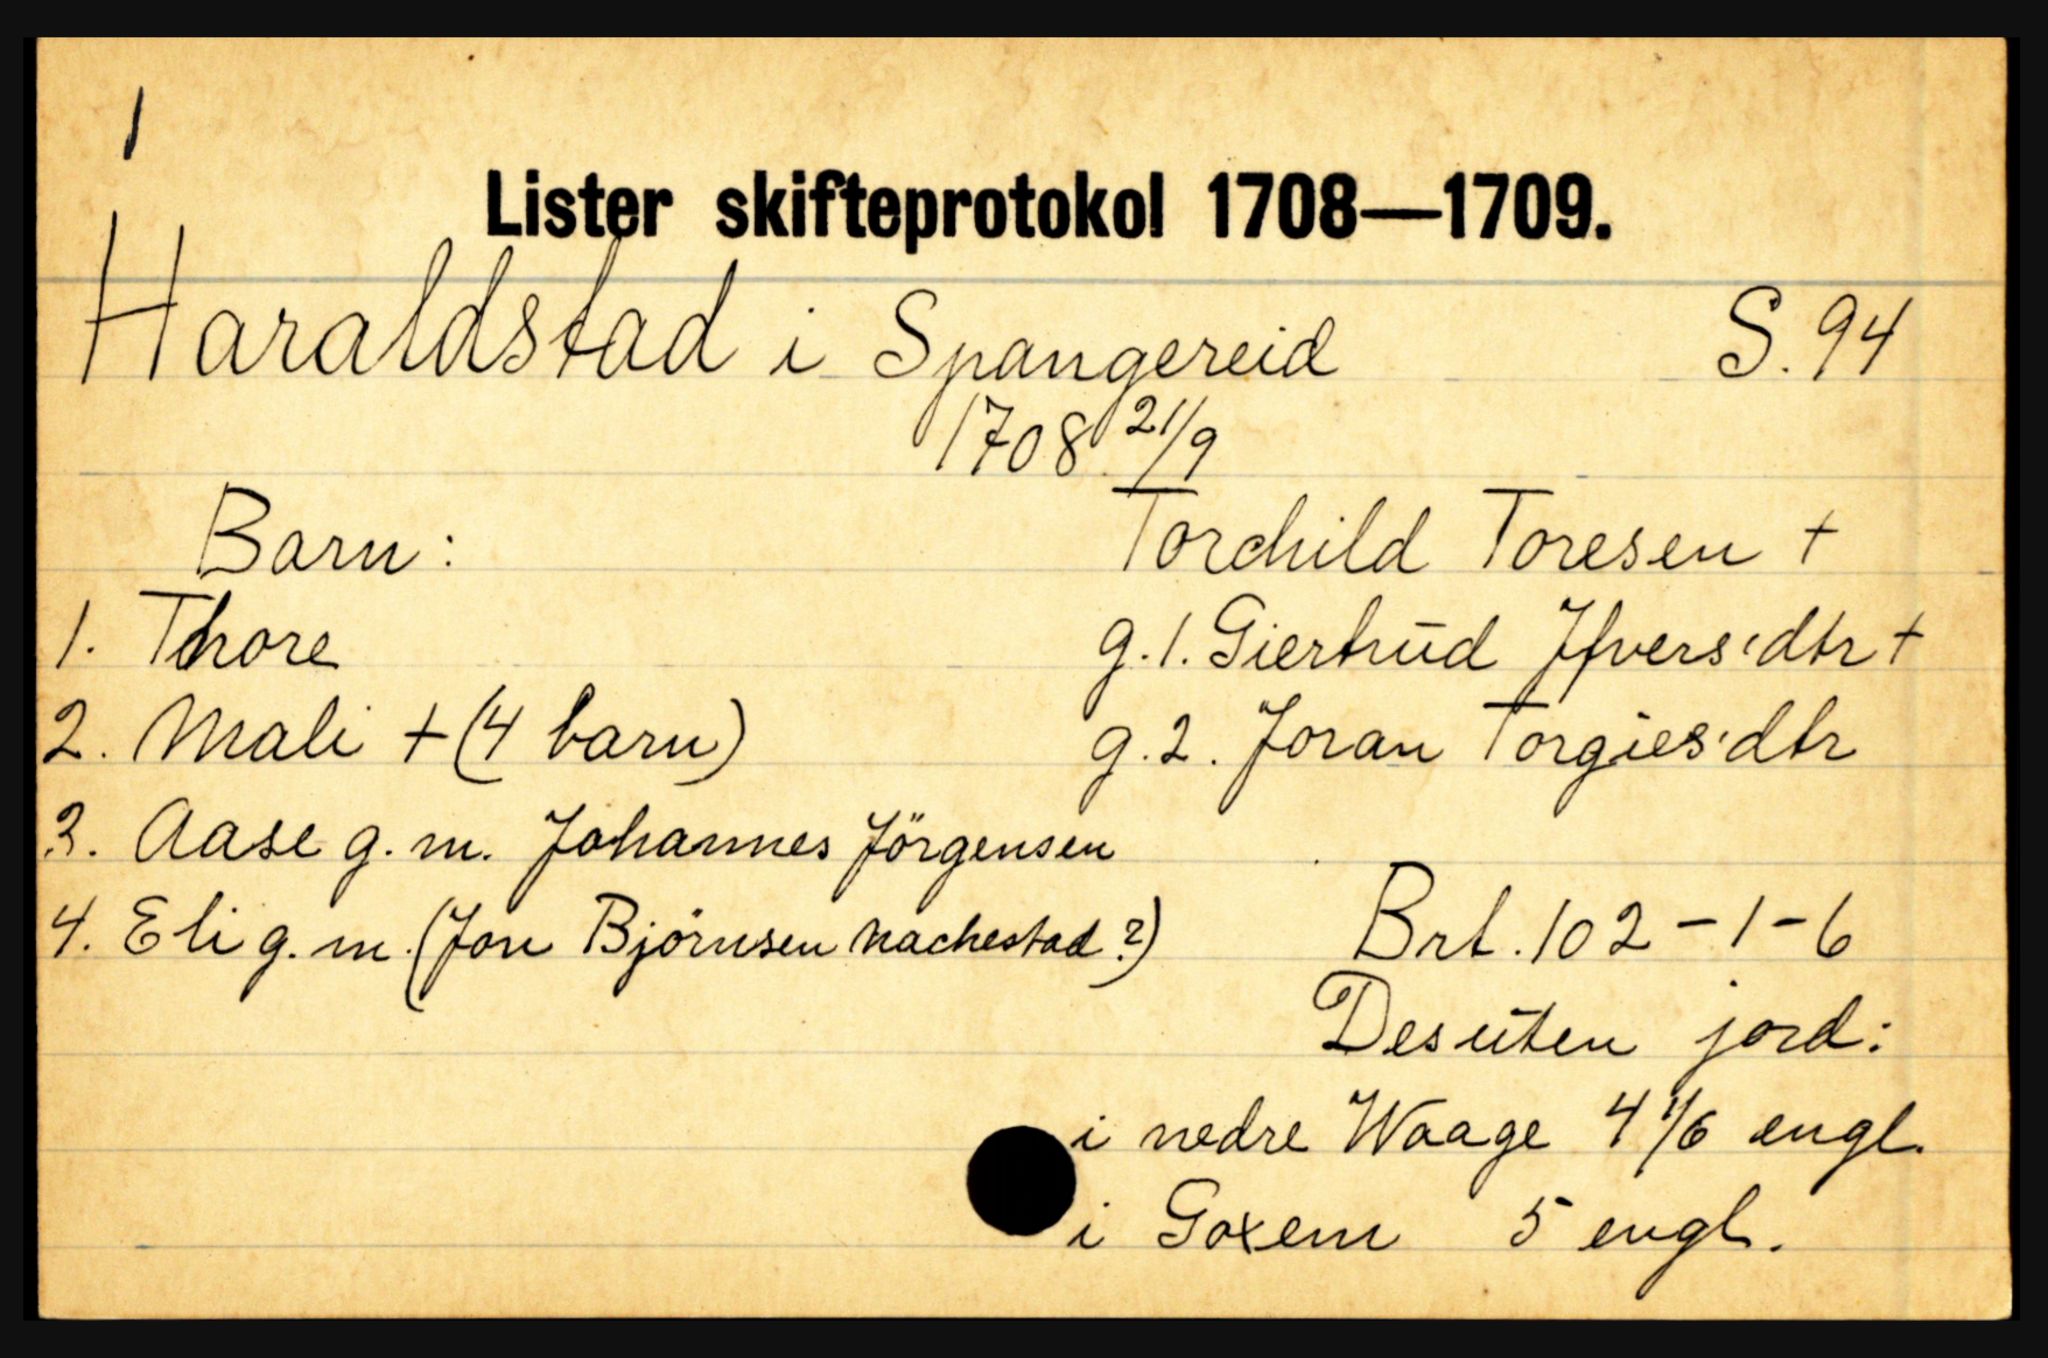 1
Lister skifteprotokol 1708—1709.
Haraldstad i Spangereid S. 94
1708 21/9
Barn:
Torchild Toresen +
1. Thore
g. 1. Giertrud Jfvers'dtr +
2. Mali + (4 barn)
g. 2. Joran Torgies'dtr
3. Aase g. m. Johannes Jörgensen
4. Eli g. m. (Jon Björnsen Nachestad?)
Brt. 102-1-6
Desuten jord:
i nedre Waage 4 1/6 engl.
i Goxem 5 engl.